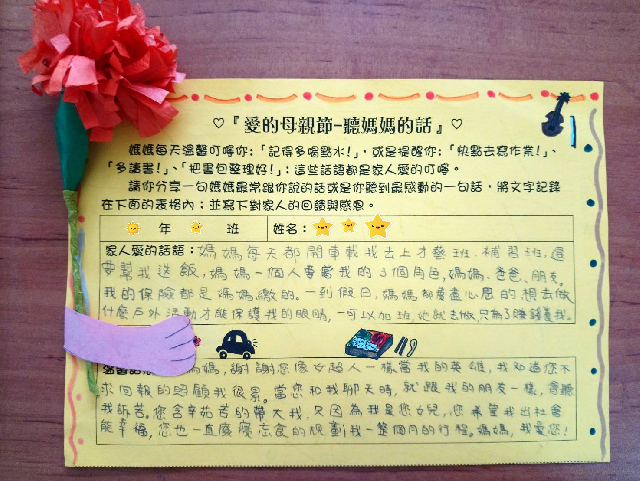 ♡『愛的母親節-聽媽媽的話』♡
媽媽每天溫馨叮嚀你:「記得多喝點水!」,或是提醒你:「快點去寫作業!」、
「多讀書!」、「把書包整理好!」;這些話語都是家人愛的叮嚀。
請你分享一句媽媽最常跟你說的話或是你聽到最感動的一句話,將文字記錄
在下面的表格內;並寫下對家人的回饋與感恩。
年 班 姓名:
家人愛的話語:媽媽每天都開車載我去上才藝班、補習班,還
要幫我送飯,媽媽一個人要當我的3個角色,媽媽、爸爸、朋友。
我的保險都是媽媽繳的。一到假日,媽媽都費盡心思的想去做
什麼戶外活動才能保護我的眼睛,一可以加班,他就去做,只為了賺錢養我。
媽媽,謝謝您像女超人一樣當我的英雄,我知道您不
求回報的照顧我很累。當您和我聊天時,就跟我的朋友一樣,會聽
我訴苦。您含辛茹苦的帶大我,只因為我是您女兒,您希望我出社會
能幸福,您也一直廢寢忘食的規劃我一整個月的行程。媽媽,我愛您!